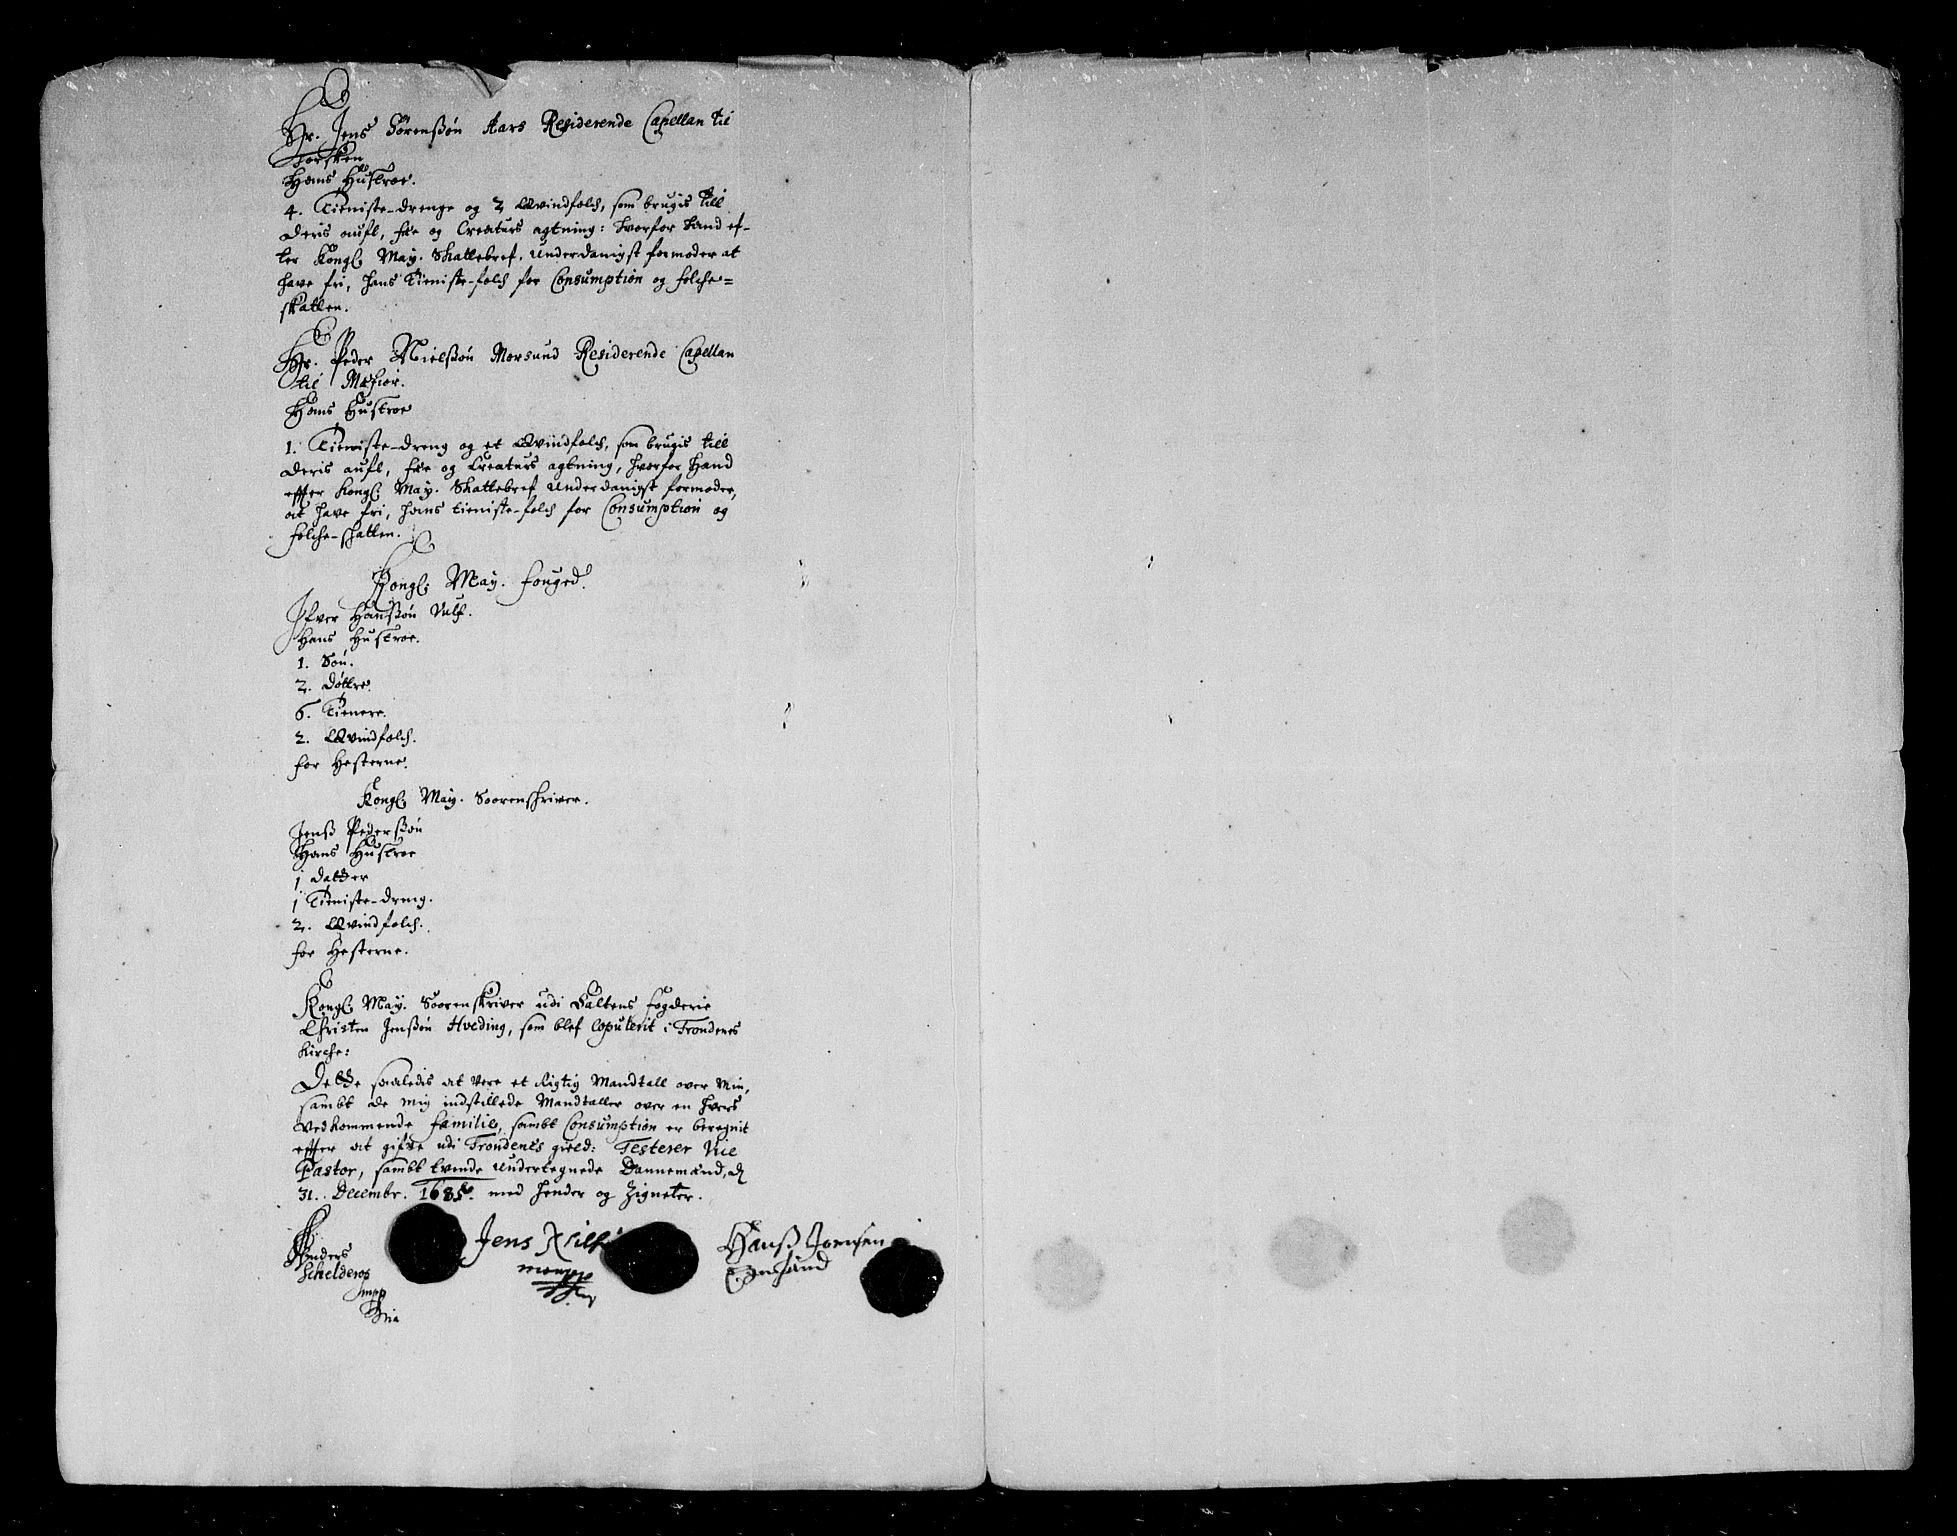 Hr. Jens Sörenßön Aars Residerende Capellan til
Torsken
Hans Hustroe.
4. Tieniste-drenge og 2 Qvindfolch, som brugis till
deris aufl, fæe og Creaturs agtning: hvorfor hand ef-
ter Kongl: May. Skattebref, underdanigst formoder at
have fri, hans Tieniste-folch for Consumption og folche=
skatten.
Hr. Peder Nielßön Morsund Residerende Capellan
til Mefior.
Hans Hustroe
1. Tieniste-dreng og et Qvindfolch, som brugis till
deris aufl, fæe og Creaturs agtning, hvorfor hand
effter Kongl: May. Skattebref underdanigst formoder,
at have fri, hans tieniste-folch for Consumption og
folche-schatten.
Kongl: May. fouged.
Ifver Hanßön Ulf.
Hans Hustroe.
1. Sön.
2. döttre.
6. Tienere.
2. Qvindfolch.
for Hesterne.
Kongl: May. Soorenschriver.
Jenß Pederßön
Hans Hustroe
1 datter
1 Tieniste-dreng.
2. Qvindfolch.
for Hesterne.
Kongl: May. Soorenskriver udi Saltens fogderie
Christen Jenßön Hveding, som blef Copulerit i Trondenes
Kirche:
Dette saaledis at vere et Rigtig Mandtall over Min,
sambt de mig indstillede Mandtaller over en hvers
vedkommende familie, sambt Consumption er beregnit
effter at gifve udi Trondenes gield: Testerer Vice
Pastor, sambt tvende undertegnede Dannemænd, d
31. Decembr. 1685. med hender og Zigneter.
Anders
Schelderop
mpp
Jens
Hanß Joensen